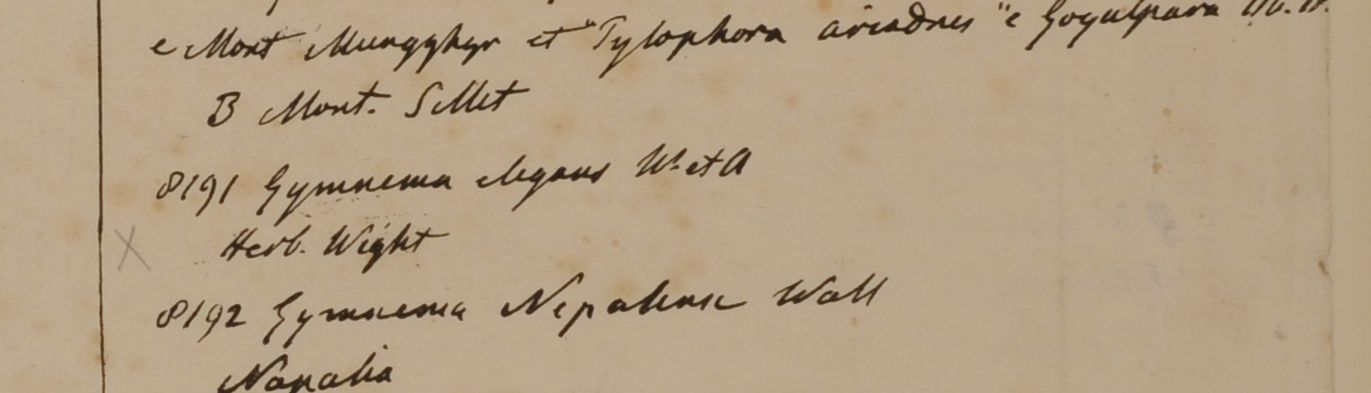 e Mont Mungghyr et "Tylophora ariadnes" e Goyalpara
B Mont. Sillet
8191 Gymnema elegans W. et A
Herb. Wight
8192 Gymnema Nepalense Wall
Napalia